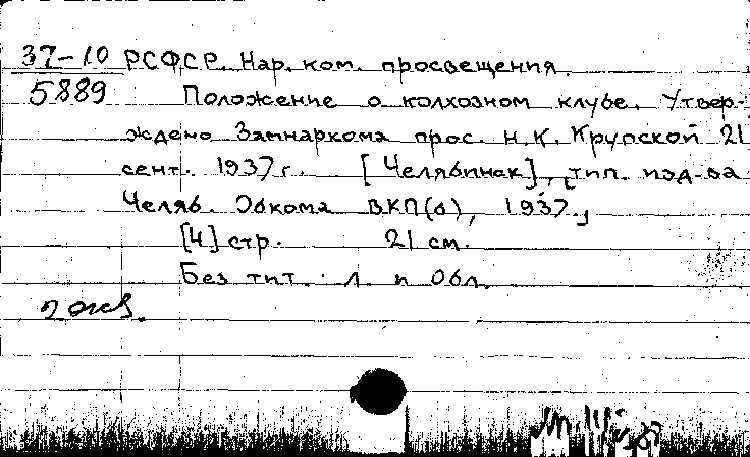 37-10 РСФСР. Нар. ком. просвещения.
5889 Положение о колхозном клубе. Утвер-
ждено Замнаркома прос. Н.К. Крупской 21
сент. 1937 г. [Челябинск], [тип. изд-ва
Челяб. Обкома ВКП(б), 1937.]
[4] стр. 21 см.
Без тит. л. и обл.